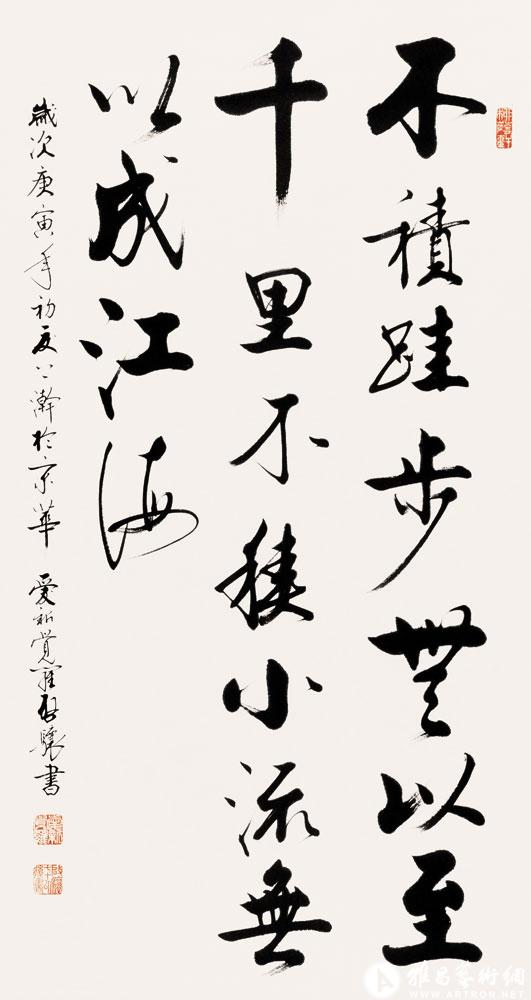 不積跬步無以至
千里不積小流無
以成江海
歲次庚寅年初夏上澣於京華 愛新覺羅啟驤書
雅昌藝術網
WWW.ARTRON.NET